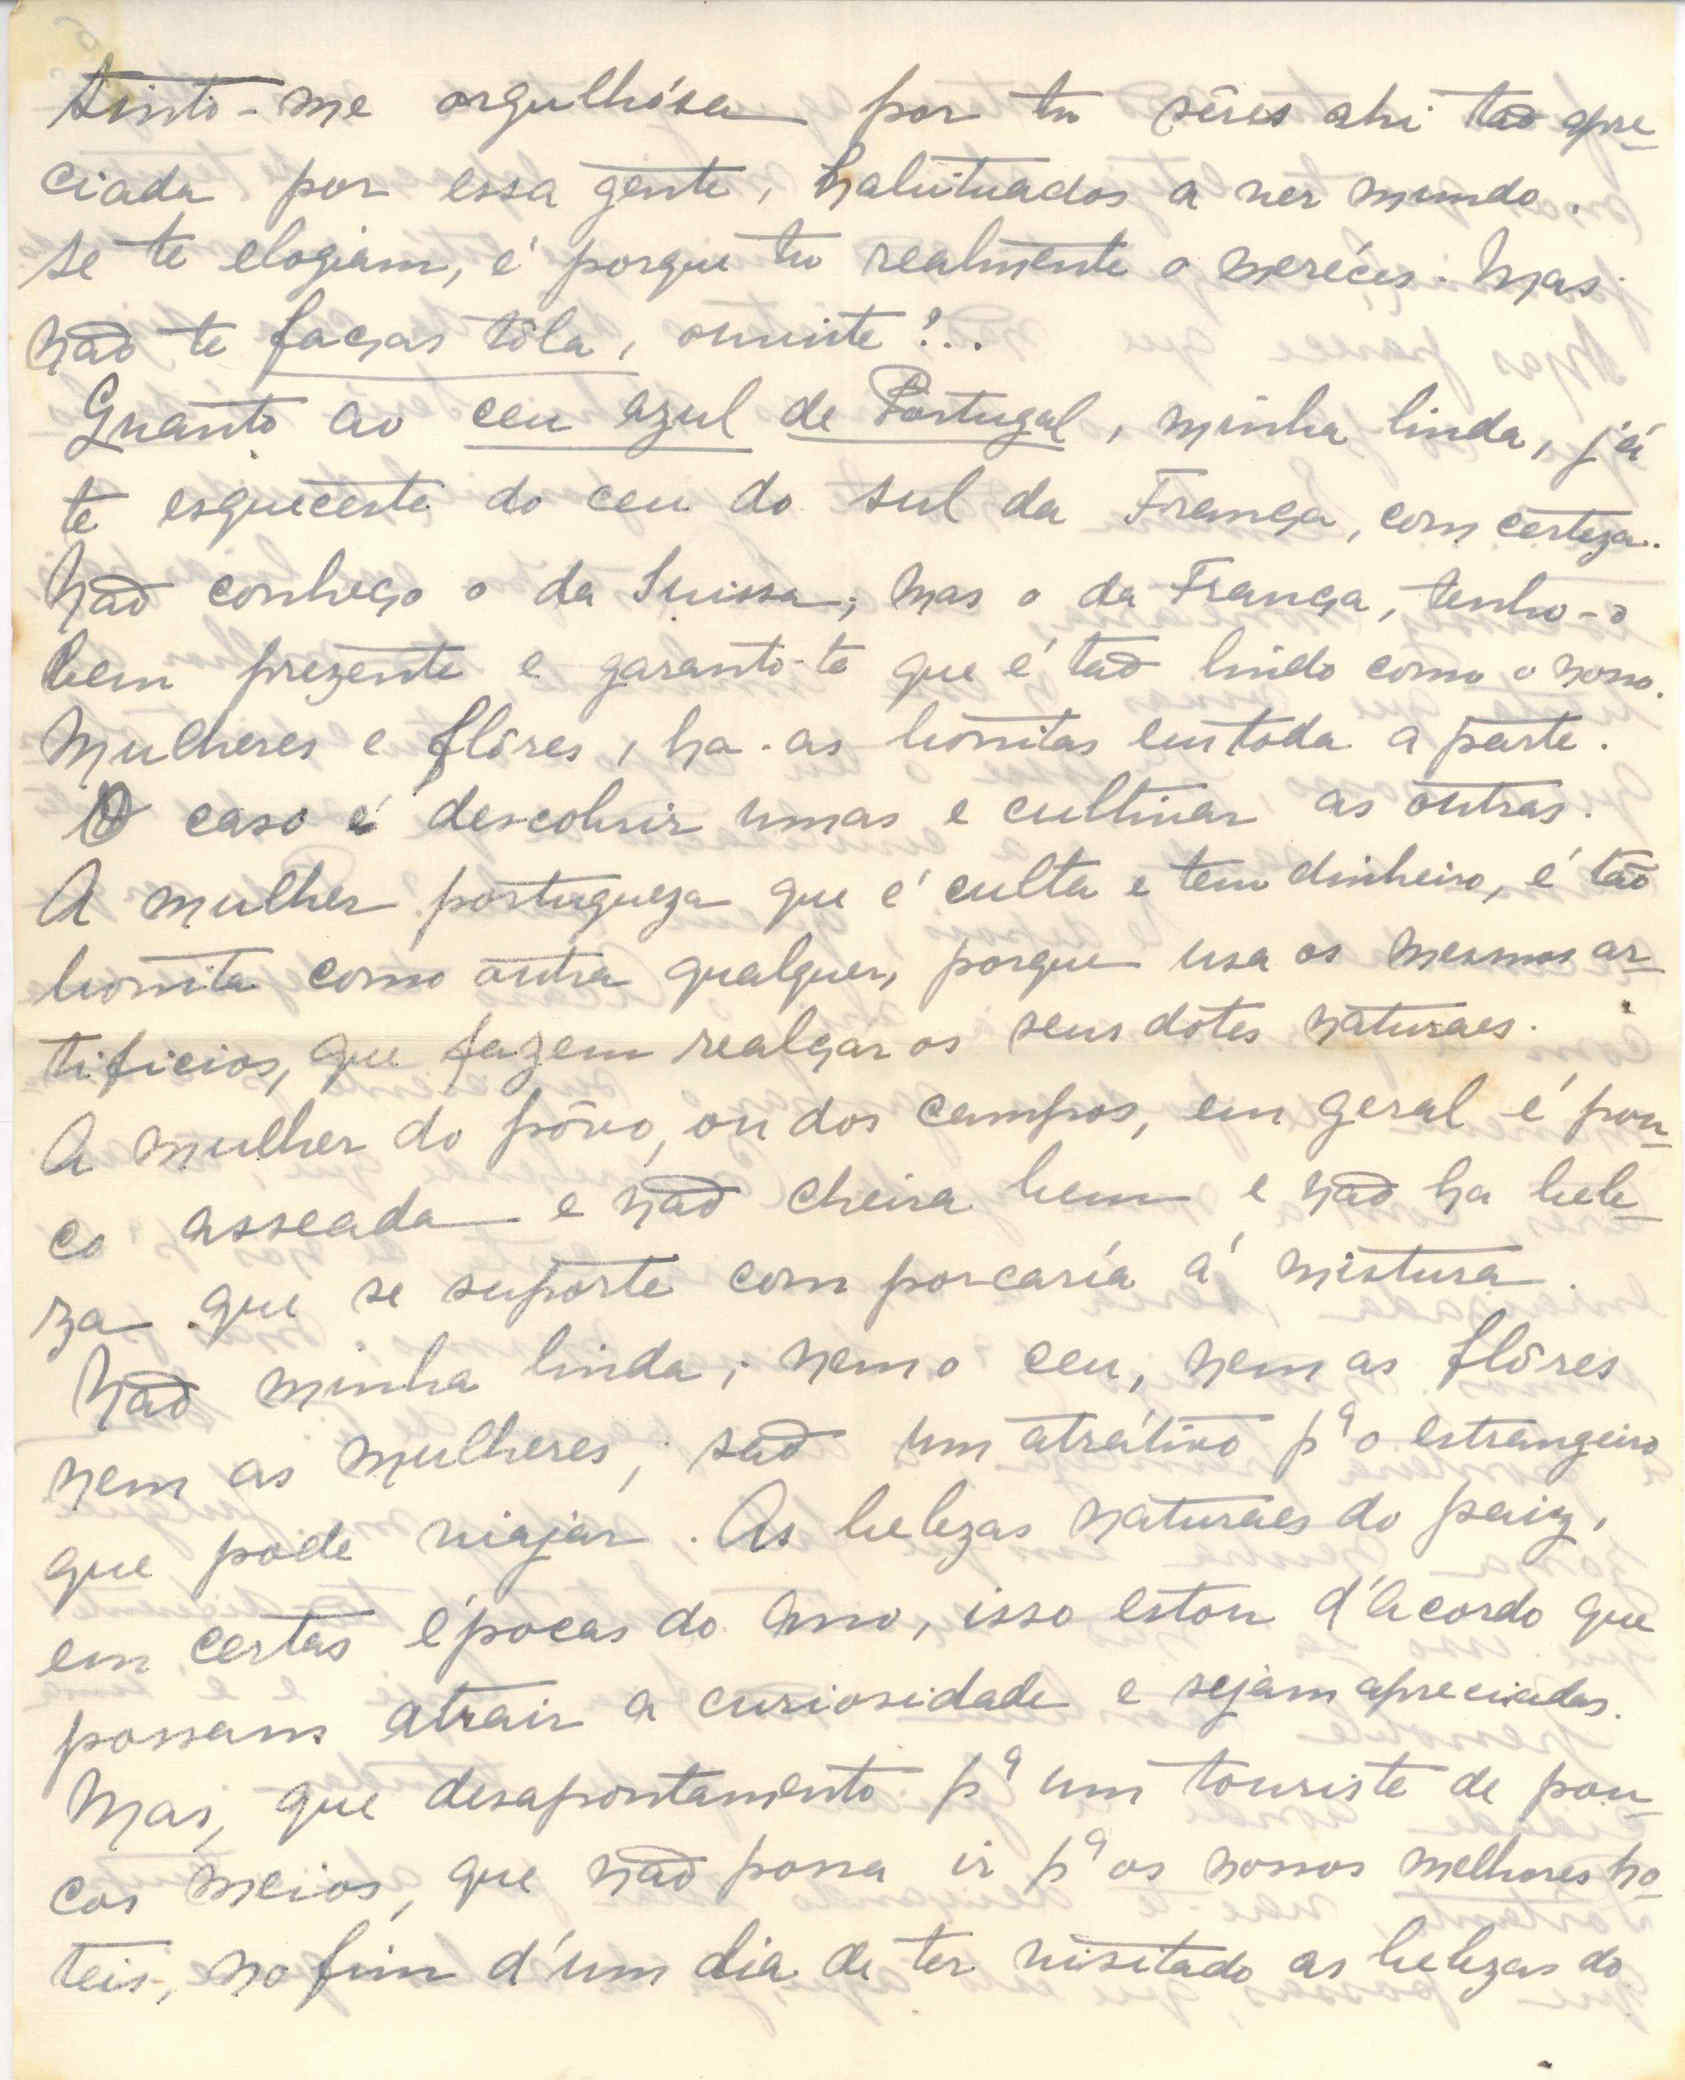 Sinto-me orgulhósa por tu sêres ahi tão apre-
ciada por essa gente, habituados a ver mundo.
Se te elogiam, é porque tu realmente o meréces. Mas
não te faças tôla, ouviste?..
Quanto ao ceu azul de Portugal, minha linda, já
te esqueceste do ceu do sul da França, com certeza.
Não conheço o da Suissa; mas o da França, tenho-o
bem prezente e garanto-te que é tão lindo como o nosso.
Mulheres e flôres, ha-as bonitas em toda a parte.
O caso é descobrir umas e cultivar as outras.
A mulher portugueza que é culta e tem dinheiro, é tão
bonita como outra qualquer, porque usa os mesmos ar-
tificios, que fazem realçar os seus dotes naturaes.
A mulher do pôvo, ou dos campos, em geral é pou-
co asseada e não cheira bem e não ha bele-
za que se suporte com porcaría á mistura.
Não minha linda; nem o ceu, nem as flôres
nem as mulheres, são um atrátivo pª o estrangeiro
que póde viajar. As belezas naturaes do paiz,
em certas épocas do ano, isso estou d'acordo que
possam atrair a curiosidade e sejam apreciadas.
Mas, que desapontamento pª um touriste de pou-
cos meios, que não possa ir pª os nossos melhores ho-
teis, no fim d'um dia de ter visitado as belezas do